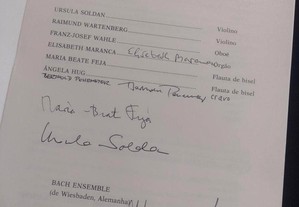 URSULA SOLDAN Violino
RAIMUND WARTENBERG Violino
FRANZ-JOSEF WAHLE Oboé
ELISABETH MARANCA Elisabeth Maranca Órgão
MARIA BEATE FEJA Flauta de bisel
ÂNGELA HUG Flauta de bisel
Cravo
Maria-Beat Feja
Ursula Soldan
BACH ENSEMBLE
(de Wiesbaden, Alemanha)